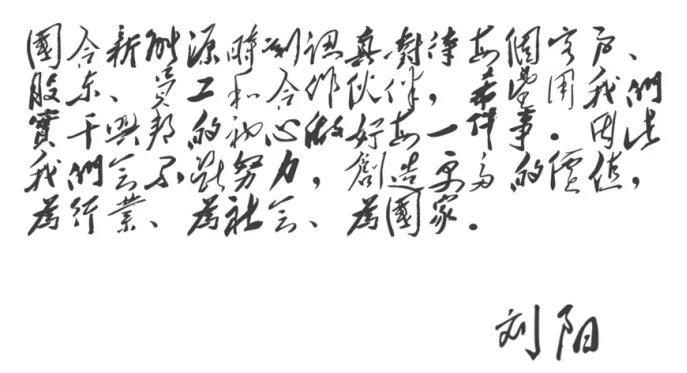 國合新能源時刻認真對待每個客戶、
股东、員工和合作伙伴，希望用我們
實干興邦的初心做好每一件事。因此
我們会不斷努力，創造更多的價值，
為行業、為社会、為國家。
刘阳